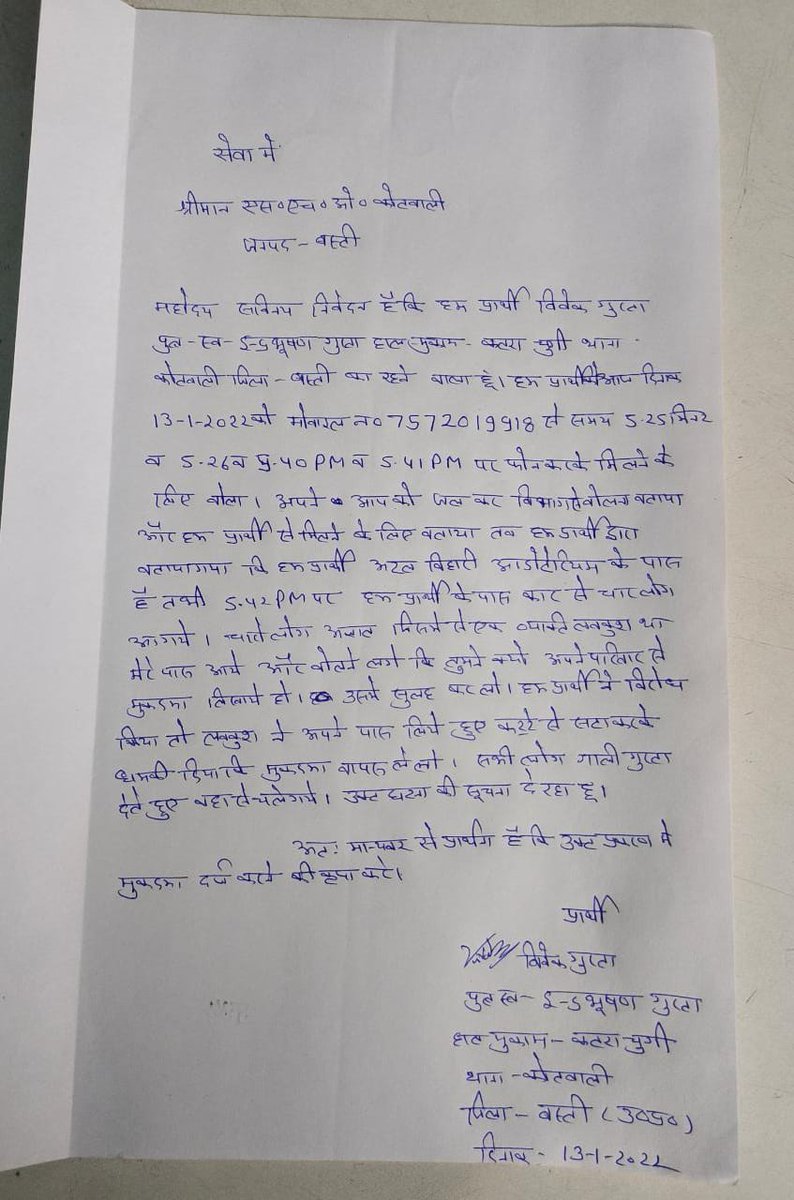 सेवा में
श्रीमान एस०एच०ओ० कोतवाली
जनपद - बस्ती
महोदय सविनय निवेदन है कि हम प्रार्थी विवेक गुप्ता
पुत्र - स्व - इन्द्रभूषण गुप्ता हाल मुकाम - कतरा चुंगी थाना -
कोतवाली जिला - बस्ती का रहने वाला हूं। हम प्रार्थी आज दिनांक
13-1-2022 को मोबाइल न० 7572019918 से समय 5.25 मिनट
व 5.26 व 5.40 PM व 5.41 PM पर फोन करके मिलने के
लिए बोला। अपने आप को जल कर विभाग से बोलना बताया
और हम प्रार्थी से मिलने के लिए बताया तब हम प्रार्थी द्वारा
बताया गया कि हम प्रार्थी अटल बिहारी आडोटेरियम के पास
है तभी 5.42 PM पर हम प्रार्थी के पास कार से चार लोग
आ गये। चारो लोग अज्ञात जिसमे से एक व्यक्ति लवकुश था
मेरे पास आये और बोलने लगे कि तुमने क्यो अपने परिवार से
मुकदमा लिखाये हो। उसमे सुलह कर लो। हम प्रार्थी ने विरोध
किया तो लवकुश ने अपने पास लिये हुए कट्टे से सटा करके
धमकी दिया कि मुकदमा वापस ले लो। सभी लोग गाली गुप्ता
देते हुए वहा से चले गये। उक्त घटना की सूचना दे रहा हूं।
अतः मान्यवर से प्रार्थना है कि उक्त प्रकरण मे
मुकदमा दर्ज करने की कृपा करे।
प्रार्थी
विवेक गुप्ता
पुत्र स्व - इन्द्रभूषण गुप्ता
हाल मुकाम - कतरा चुंगी
थाना - कोतवाली
जिला - बस्ती (उ०प्र०)
दिनांक - 13-1-2022